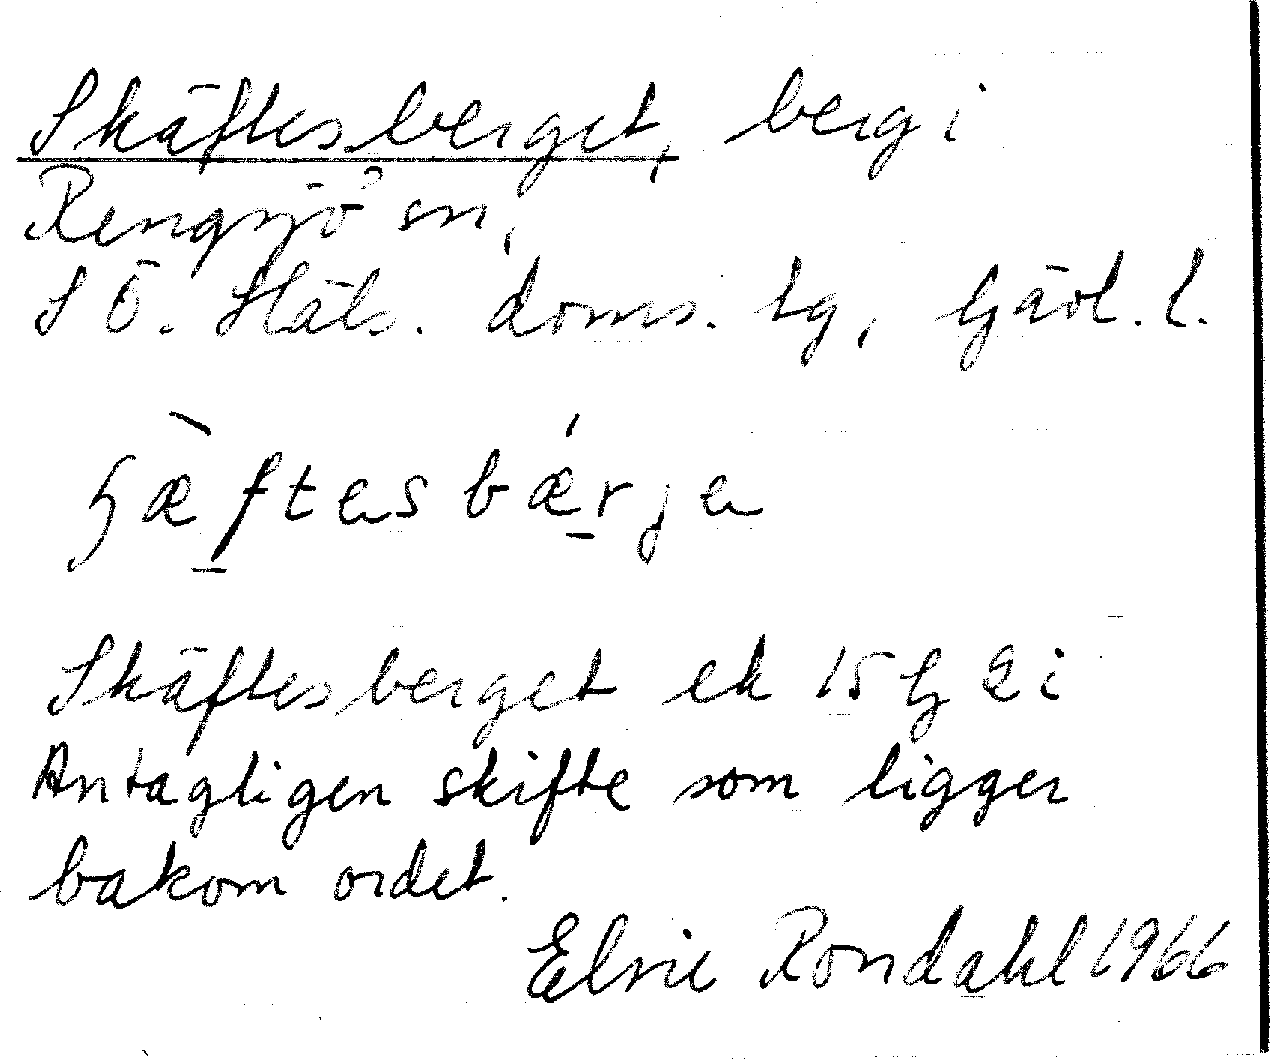 Skäftesberget, berg i
Rengsjö sn,
S Ö. Häls. doms. tg, Gävl. l.
ʃæ̀ftesbǽrje
Skäftesberget ek 15 G 2 i
Antagligen skifte som ligger
bakom ordet.
Elsie Rondahl 1966